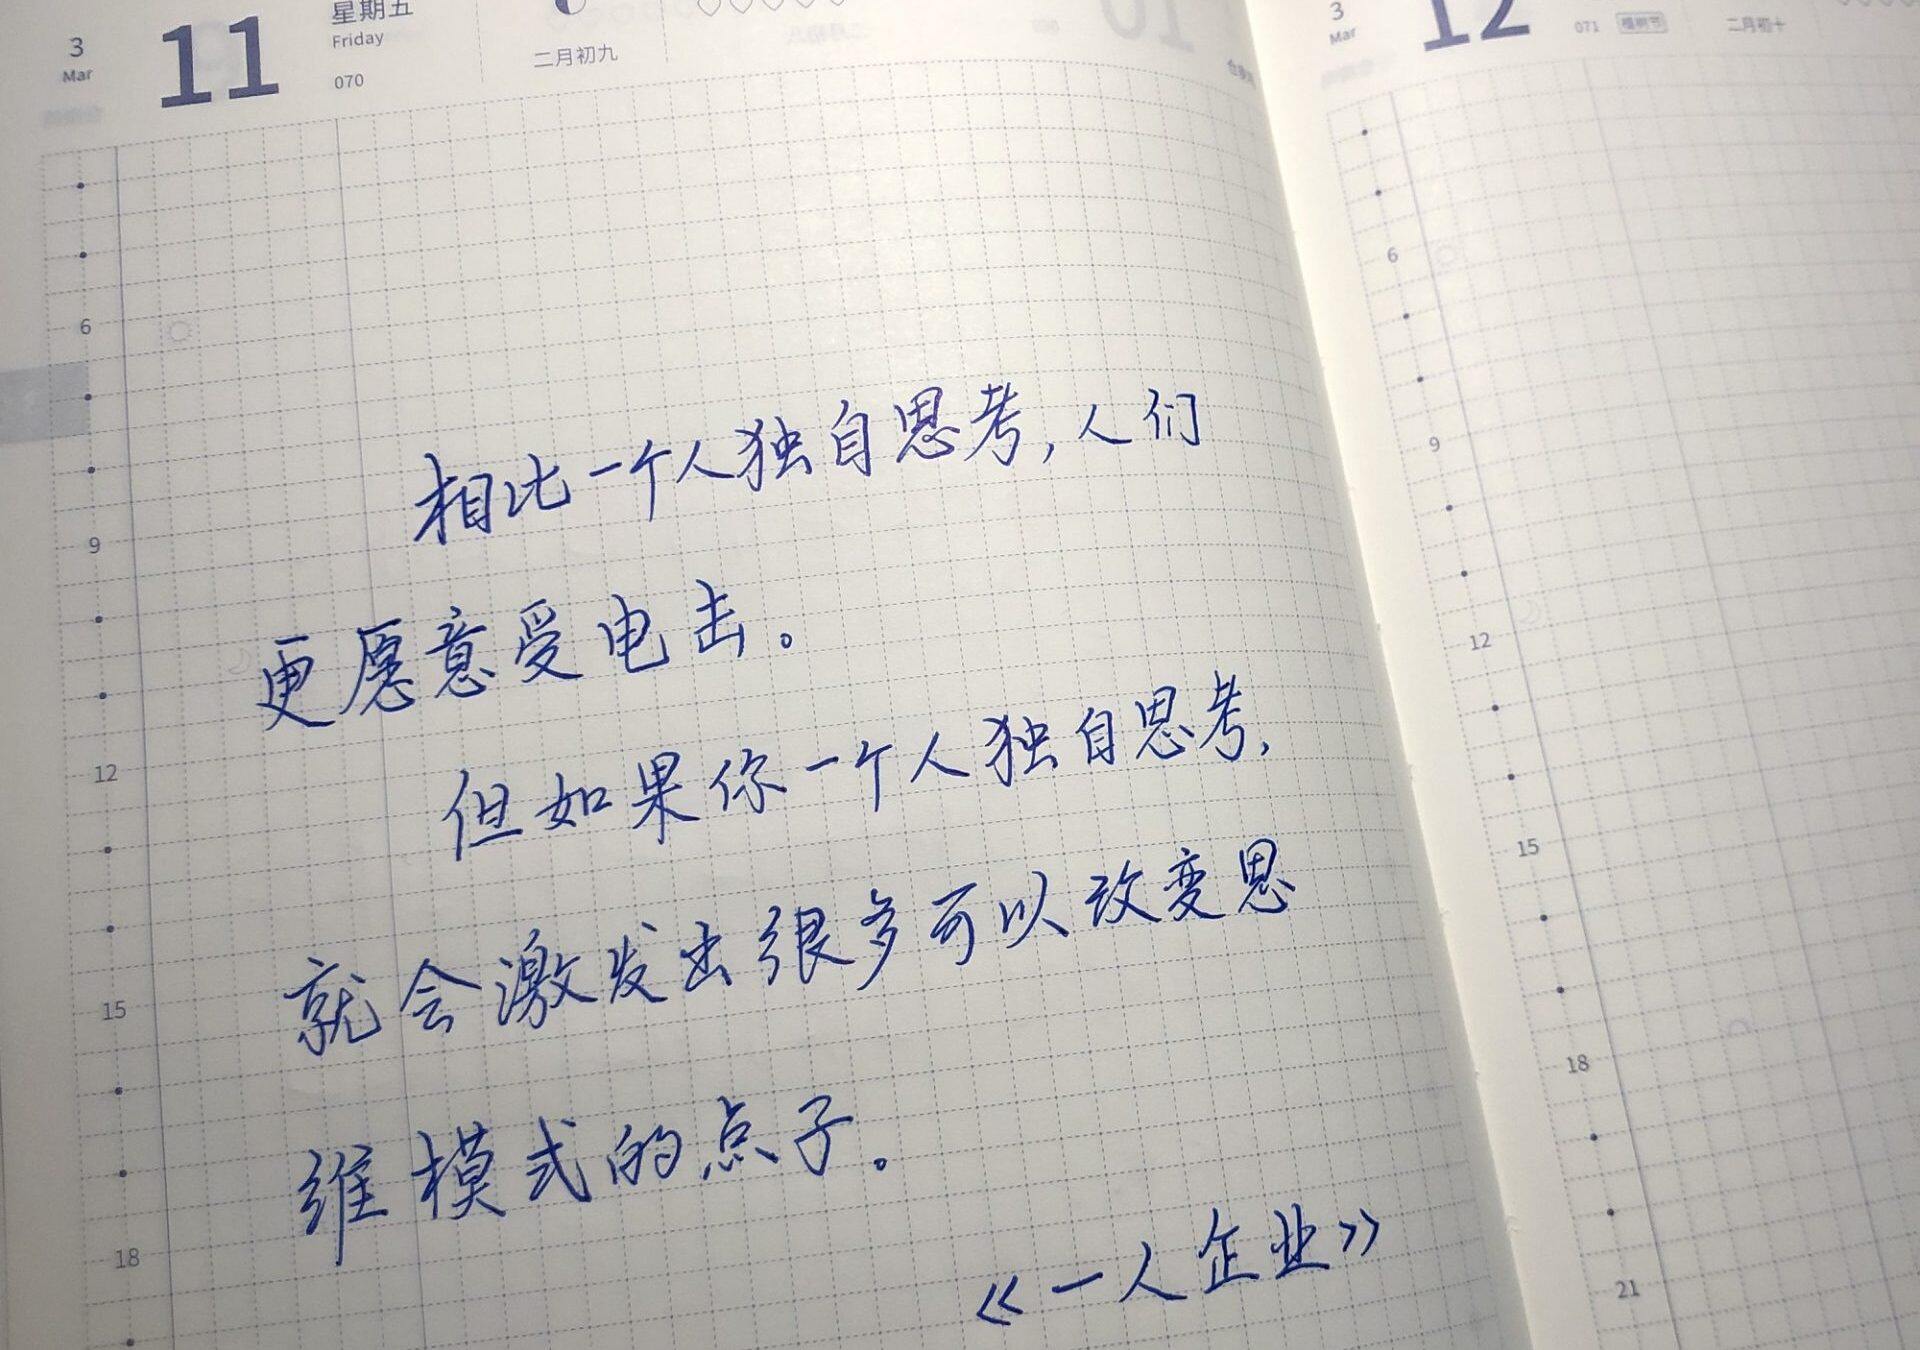 3
Mar
11
星期五
Friday
070
二月初九
3
Mar
12
071 植树节
二月初十
6
9
12
15
18
相比一个人独自思考,人们
更愿意受电击。
但如果你一个人独自思考,
就会激发出很多可以改变思
维模式的点子。
《一人企业》
6
9
12
15
18
21